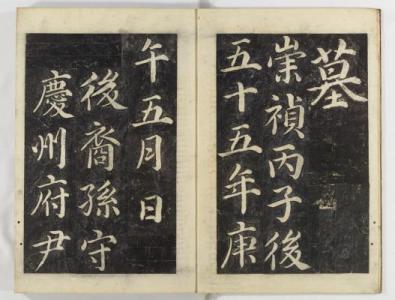 墓
崇禎丙子後
五十五年庚
午五月 日
後裔孫守
慶州府尹